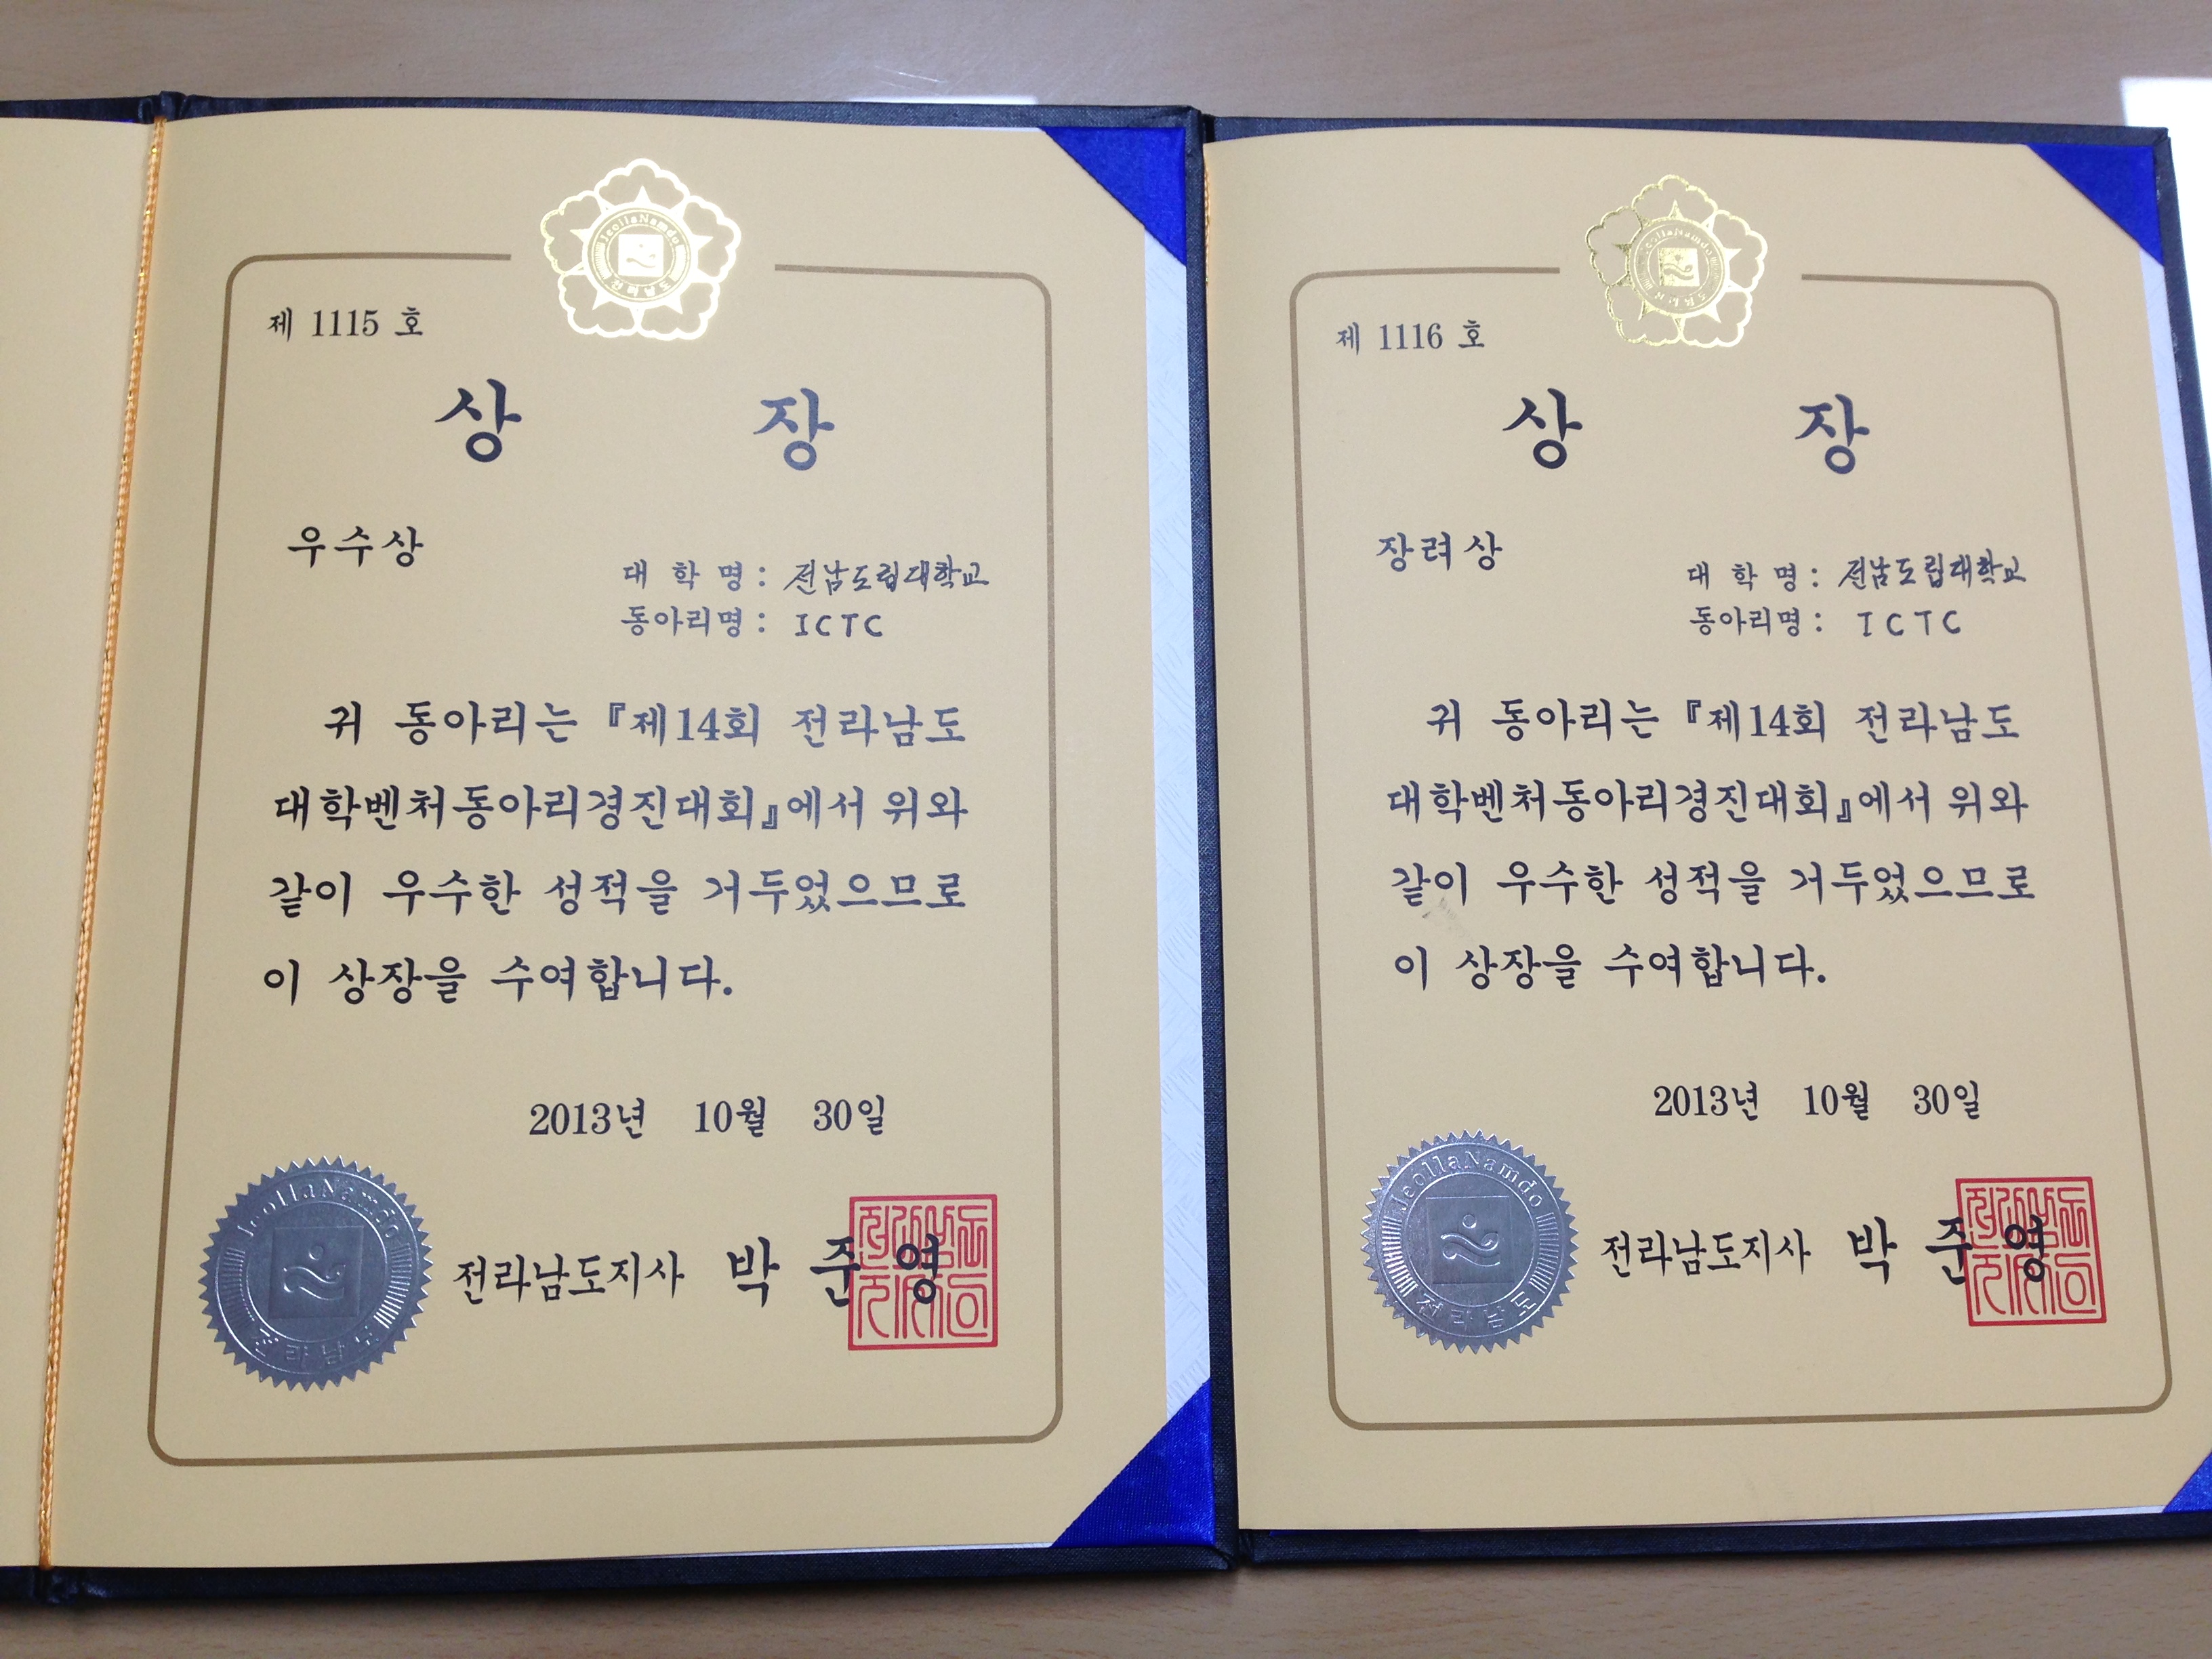 JeollaNamdo
전라남도
제 1115 호
상 장
우수상
대 학 명 : 전남도립대학교
동아리명 : ICTC
귀 동아리는 『제14회 전라남도
대학벤처동아리경진대회』에서 위와
같이 우수한 성적을 거두었으므로
이 상장을 수여합니다.
2013년 10월 30일
JeollaNamdo
전라남도
전라남도지사 박 준 영
JeollaNamdo
전라남도
제 1116 호
상 장
장려상
대 학 명 : 전남도립대학교
동아리명 : ICTC
귀 동아리는 『제14회 전라남도
대학벤처동아리경진대회』에서 위와
같이 우수한 성적을 거두었으므로
이 상장을 수여합니다.
2013년 10월 30일
JeollaNamdo
전라남도
전라남도지사 박 준 영